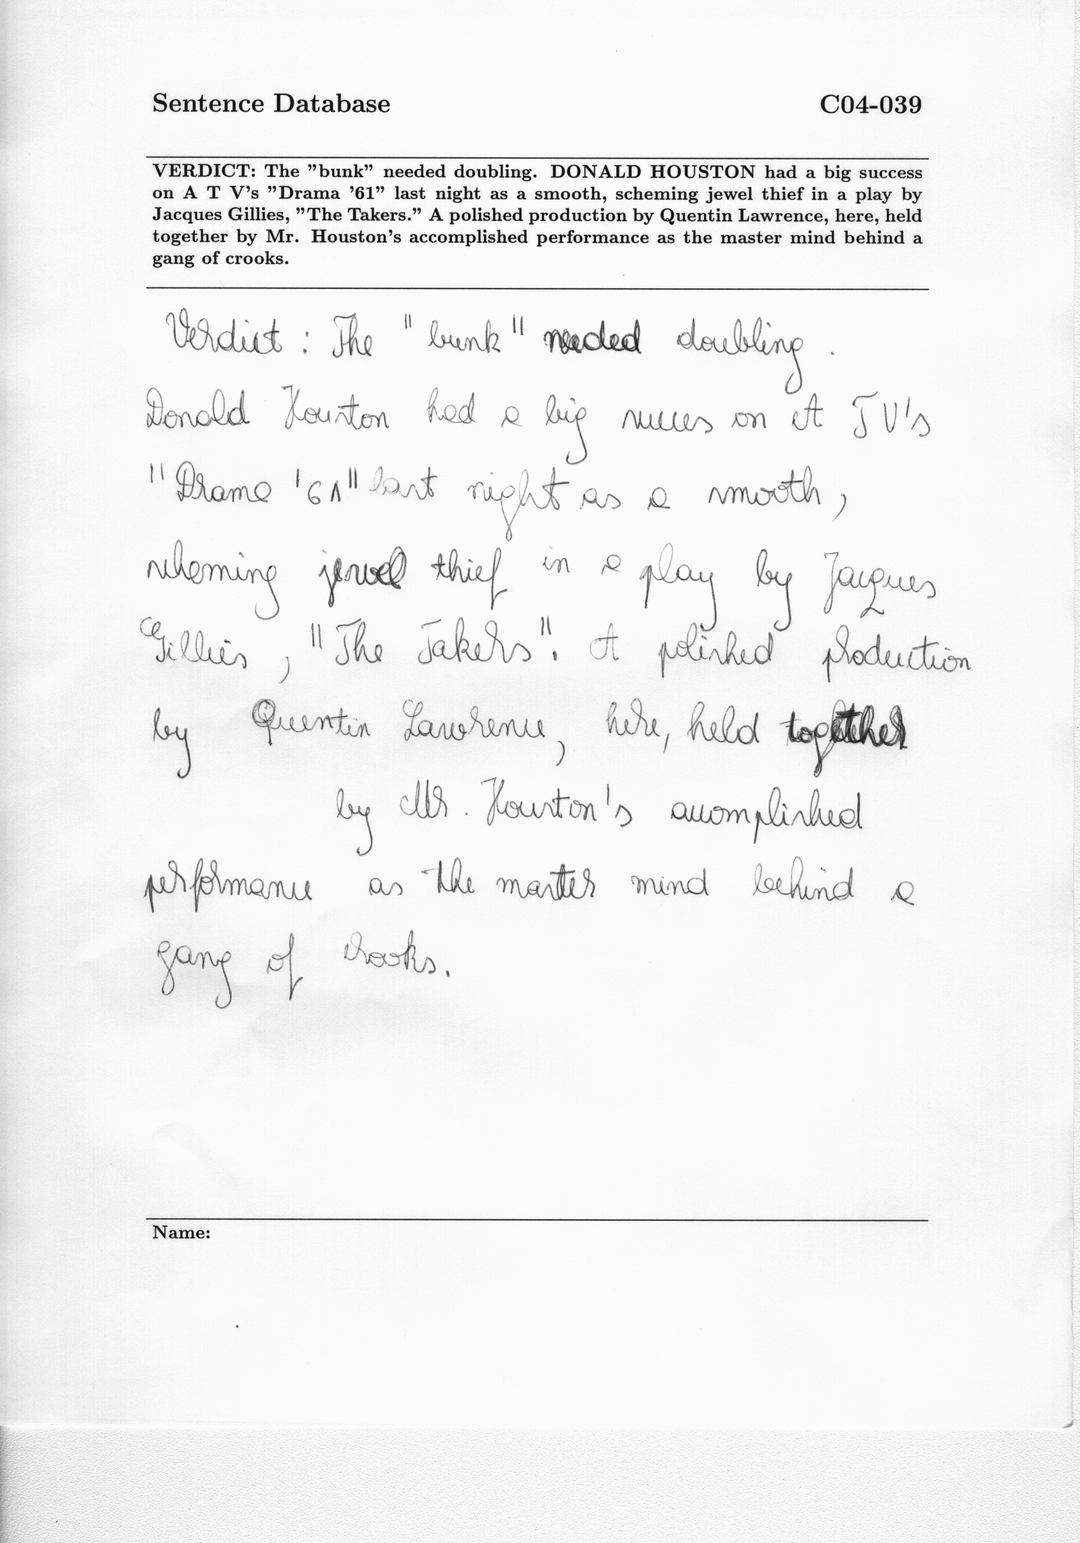 Sentence Database C04-039
VERDICT: The "bunk" needed doubling. DONALD HOUSTON had a big success
on A T V's "Drama '61" last night as a smooth, scheming jewel thief in a play by
Jacques Gillies, "The Takers." A polished production by Quentin Lawrence, here, held
together by Mr. Houston's accomplished performance as the master mind behind a
gang of crooks.
Verdict : The "bunk" needed doubling .
Donald Houston had a big success on A TV's
"Drama '61" last night as a smooth,
scheming jewel thief in a play by Jacques
Gillies, "The Takers". A polished production
by Quentin Lawrence, here, held together
by Mr. Houston's accomplished
performance as the master mind behind a
gang of crooks.
Name: